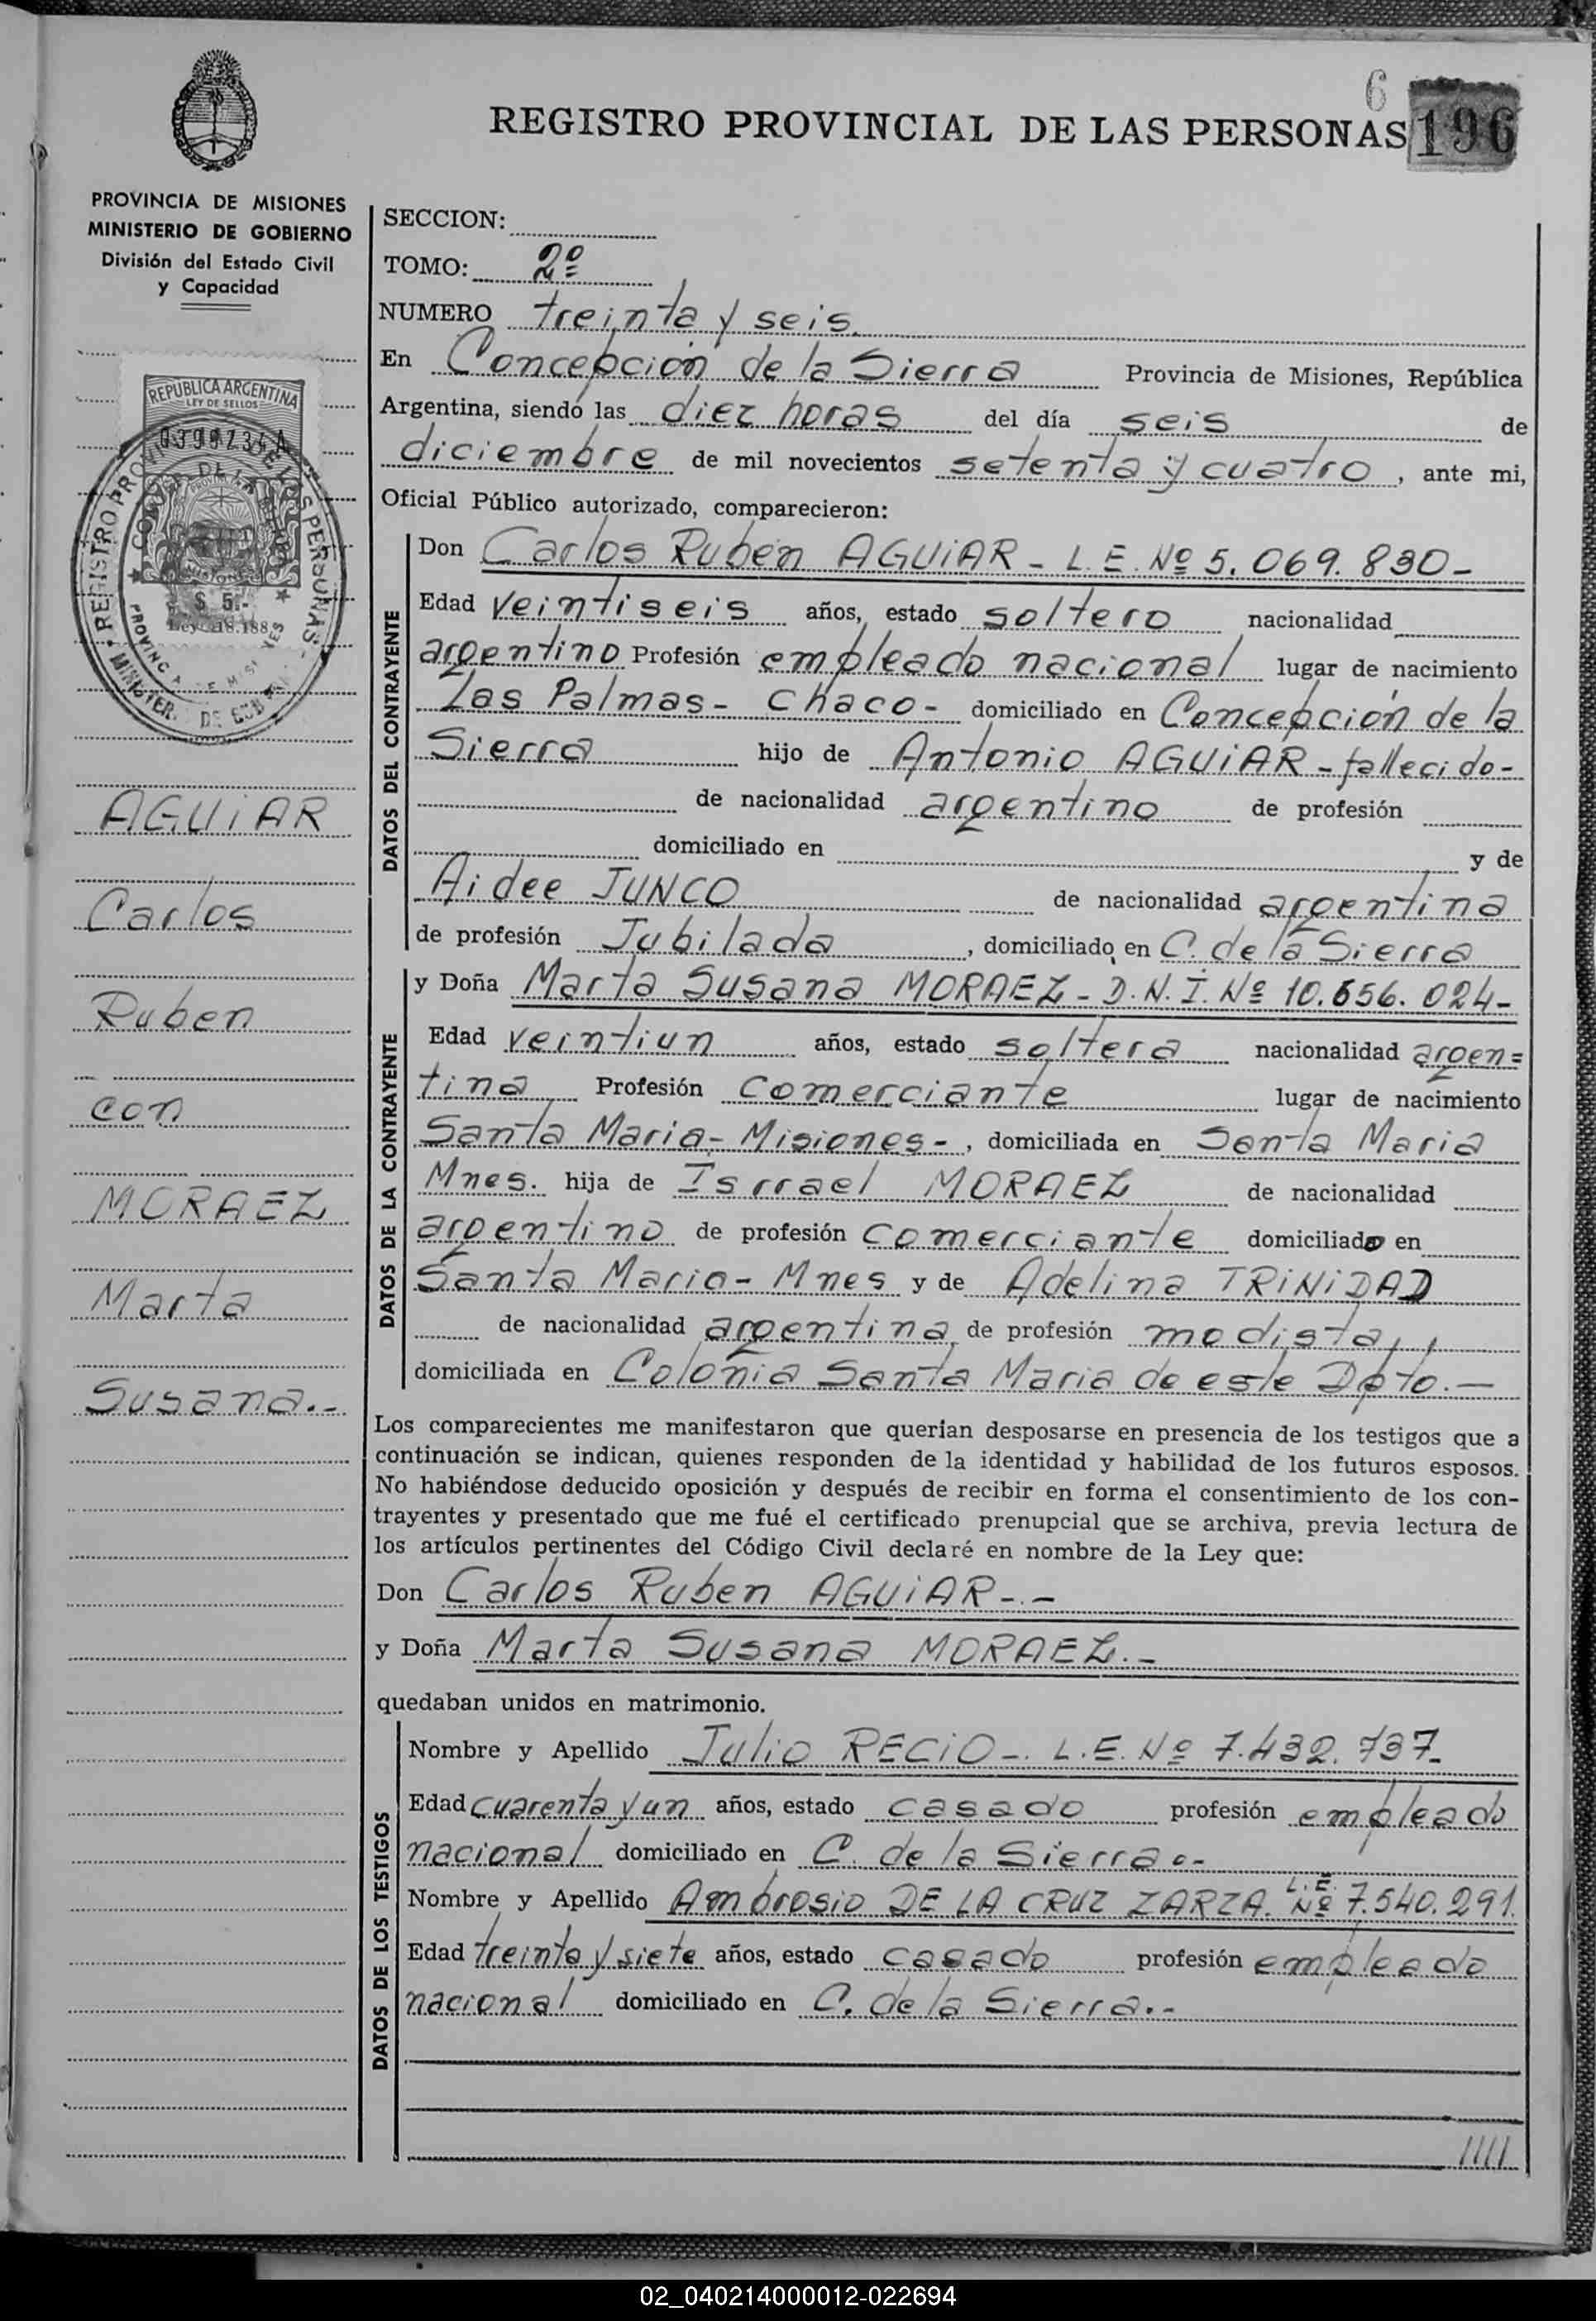 6
REGISTRO PROVINCIAL DE LAS PERSONAS 196
PROVINCIA DE MISIONES
MINISTERIO DE GOBIERNO
División del Estado Civil
y Capacidad
REPUBLICA ARGENTINA
LEY DE SELLOS
$ 5.-
Ley 18.188
REGISTRO PROVINCIAL DE LAS PERSONAS
AGUIAR
Carlos
Ruben
con
MORAEZ
Marta
Susana.-
SECCION:
TOMO: 2º
NUMERO treinta y seis.
En Concepción de la Sierra Provincia de Misiones, República
Argentina, siendo las diez horas del día seis de
diciembre de mil novecientos setenta y cuatro, ante mi,
Oficial Público autorizado, comparecieron:
DATOS DEL CONTRAYENTE
Don Carlos Ruben AGUiAR - L.E. Nº 5.069.830-
Edad veintiseis años, estado soltero nacionalidad
argentino Profesión empleado nacional lugar de nacimiento
Las Palmas - Chaco - domiciliado en Concepción de la
Sierra hijo de Antonio AGUiAR - fallecido-
de nacionalidad argentino de profesión
domiciliado en y de
Aidee JUNCO de nacionalidad argentina
de profesión Jubilada, domiciliado en C. de la Sierra
DATOS DE LA CONTRAYENTE
y Doña Marta Susana MORAEZ - D.N.I. Nº 10.656.024-
Edad veintiun años, estado soltera nacionalidad argen=
tina Profesión Comerciante lugar de nacimiento
Santa Maria - Misiones -, domiciliada en Santa Maria
Mnes. hija de Isrrael MORAEZ de nacionalidad
argentino de profesión Comerciante domiciliado en
Santa Maria - Mnes y de Adelina TRiNiDAD
de nacionalidad argentina de profesión modista,
domiciliada en Colonia Santa Maria de este Dpto.-
Los comparecientes me manifestaron que querían desposarse en presencia de los testigos que a
continuación se indican, quienes responden de la identidad y habilidad de los futuros esposos.
No habiéndose deducido oposición y después de recibir en forma el consentimiento de los con-
trayentes y presentado que me fué el certificado prenupcial que se archiva, previa lectura de
los artículos pertinentes del Código Civil declaré en nombre de la Ley que:
Don Carlos Ruben AGUiAR-.-
y Doña Marta Susana MORAEZ.-
quedaban unidos en matrimonio.
DATOS DE LOS TESTIGOS
Nombre y Apellido Julio RECiO-. L.E. Nº 7.432.737-
Edad cuarenta y un años, estado casado profesión empleado
nacional domiciliado en C. de la Sierra.-
Nombre y Apellido Ambrosio DE LA CRUZ ZARZA. L.E. Nº 7.540.291.
Edad treinta y siete años, estado casado profesión empleado
nacional domiciliado en C. de la Sierra.-
////
02_040214000012-022694